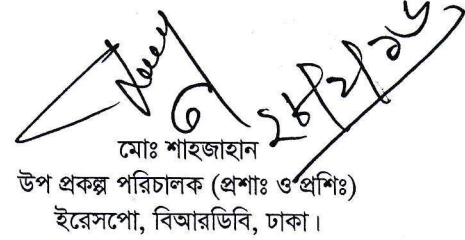 মোঃ শাহজাহান
উপ প্রকল্প পরিচালক (প্রশাঃ ও প্রশিঃ)
ইরেসপো, বিআরডিবি, ঢাকা।